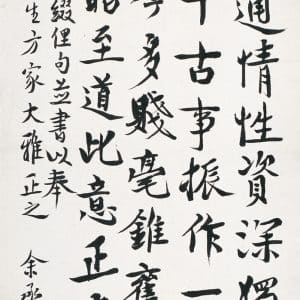 通情性資深
千古事振作一
多賤毫錐舊
至道此意正
綴俚句並書以奉
生方家大雅正之 余承